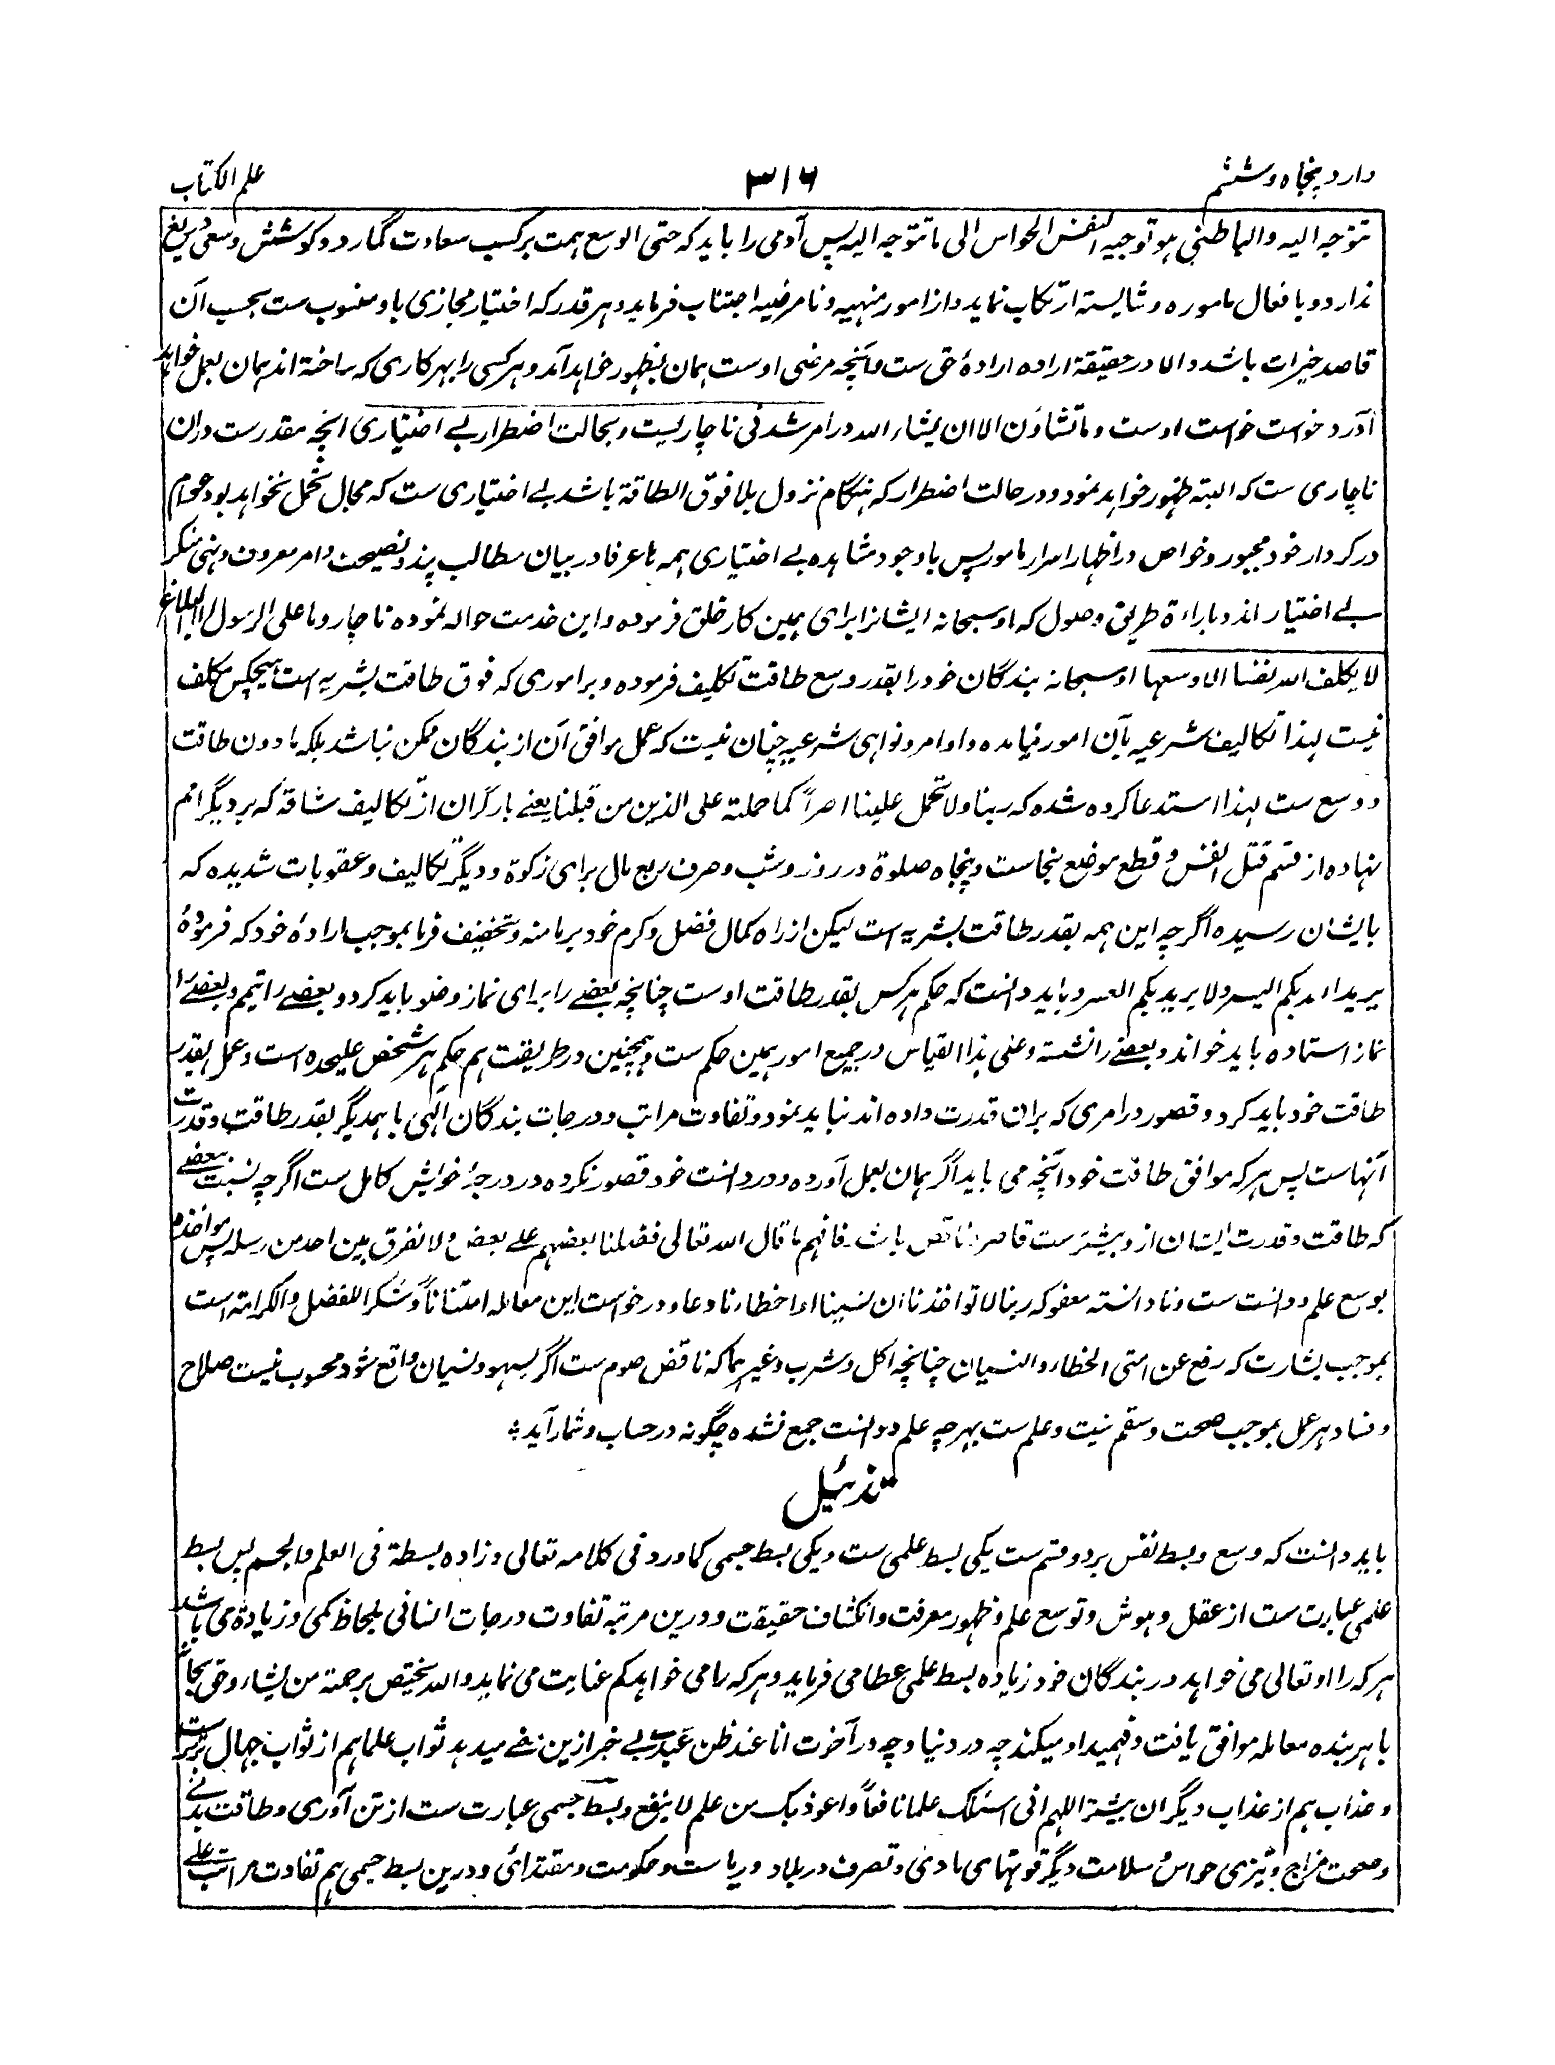 وارد پنجاه و ششم
۳۱۶
علم الکتاب
تتوجه الیه والباطنی هو توجیه النفس الحواس الی ما تتوجه الیه پس آدمی را باید که حتی الوسع همت بر کسب سعادت گمارد و کوشش و سعی دریغ
ندارد و بافعال ماموره و شایسته ارتکاب نماید و از امور منهیه و نامرضیه اجتناب فرماید و هر قدر که اختیار مجازی باو منسوب ست بحسب آن
قاصد خیرات باشد والا در حقیقة اراده ارادهٔ حق ست و آنچه مرضی اوست همان بظهور خواهد آمد و هر کسی را بهر کاری که ساخته اند همان بعمل خواهد
آورد و خواست خواست اوست و ما تشاؤن الا ان یشاء الله در امر شدنی ناچاریست و بحالت اضطرار بے اختیاری آنچه مقدرست دران
ناچاری ست که البته ظهور خواهد نمود و در حالت اضطرار که هنگام نزول بلا فوق الطاقة باشد بے اختیاری ست که مجال تحمل نخواهد بود عوام
در کردار خود مجبور و خواص در اظهار اسرار مامور پس باوجود مشاهده بے اختیاری همه ها عرفا در بیان مطالب پند و نصیحت و امر معروف و نهی منکر
بے اختیار اند و باراءة طریق وصول که او سبحانه ایشانرا برای همین کار خلق فرموده و این خدمت حواله نموده ناچار و ما علی الرسول الا البلاغ
لا یکلف الله نفسا الا وسعها او سبحانه بندگان خود را بقدر وسع طاقت تکلیف فرموده و بر اموری که فوق طاقت بشریه است هیچکس مکلف
نیست لهذا تکالیف شرعیه بآن امور نیامده و اوامر و نواهی شرعیه چنان نیست که عمل موافق آن از بندگان ممکن نباشد بلکه مادون طاقت
و وسع ست لهذا استدعا کرده شده که ربنا ولا تحمل علینا اصراً کما حملته علی الذین من قبلنا یعنے بار گران از تکالیف شاقه که بر دیگر امم
نهاده از قسم قتل النفس و قطع موضع نجاست و پنجاه صلوة در روز و شب و صرف ربع مال برای زکوة و دیگر تکالیف و عقوبات شدیده که
بایشان رسیده اگرچه این همه بقدر طاقت بشریه است لیکن از راه کمال فضل و کرم خود بر ما منه و تخفیف فرما بموجب ارادهٔ خود که فرمودهٔ
یرید الله بکم الیسر ولا یرید بکم العسر و باید دانست که حکم هر کس بقدر طاقت اوست چنانچه بعضے را برای نماز وضو باید کرد و بعضے را تیمم و بعضے را
نماز استاده باید خواند و بعضے را نشسته و علی هذا القیاس در جمیع امور همین حکم ست و همچنین در طریقت هم حکم هر شخص علیحده است و عمل بقدر
طاقت خود باید کرد و قصور در امری که بران قدرت داده اند نباید نمود و تفاوت مراتب و درجات بندگان الهی باهمدیگر بقدر طاقت و قدرت
آنهاست پس هر که موافق طاقت خود آنچه می باید اگر همان بعمل آورده و در دانست خود قصور نکرده در درجهٔ خویش کامل ست اگرچه نسبت بعضے
که طاقت و قدرت ایشان ازو بیشترست قاصر و ناقص باشد فافهم ما قال الله تعالی فضلنا بعضهم علے بعض ولا نفرق بین احد من رسله پس مواخذه
بوسع علم و دانست ست و نادانسته معفو که ربنا لا تواخذنا ان نسینا او اخطاءنا و دعا و درخواست این معامله امتناناً و شکرا للفضل والکرامته است
بموجب بشارت که رفع عن امتی الخطاء والنسیان چنانچه اکل و شرب و غیرهما که ناقض صوم ست اگر بسهو و نسیان واقع شود محسوب نیست صلاح
و فساد هر عمل بموجب صحت و سقم نیت و علم ست بهرچه علم و دانست جمع نشده چگونه در حساب و شمار آید
تذئیل
باید دانست که وسع و بسط نفس بر دو قسم ست یکی بسط علمی ست و یکی بسط جسمی کما ورد فی کلامه تعالی و زاده بسطة فی العلم والجسم پس بسط
علمی عبارت ست از عقل و هوش و توسع علم و ظهور معرفت و انکشاف حقیقت و درین مرتبه تفاوت درجات انسانی بلحاظ کمی و زیادة می باشد
هر که را او تعالی می خواهد در بندگان خود زیاده بسط علمی عطا می فرماید و هر که را می خواهد کم عنایت می نماید والله یختص برحمته من یشاء و حق سبحانه
با هر بنده معامله موافق یافت و فهمید او میکند چه در دنیا و چه در آخرت انا عند ظن عبدی بے خبر ازین نفے میدهد ثواب علما هم از ثواب جهال بزرگست
و عذاب هم از عذاب دیگران بیشتر اللهم انی اسئلک علما نافعاً و اعوذ بک من علم لا ینفع و بسط جسمی عبارت ست از تن آوری و طاقت بدنے
و صحت مزاج و تیزی حواس و سلامت دیگر قوتهای مادی و تصرف در بلاد و ریاست و حکومت و مقتدائی و درین بسط جسمی هم تفاوت مراتب علے